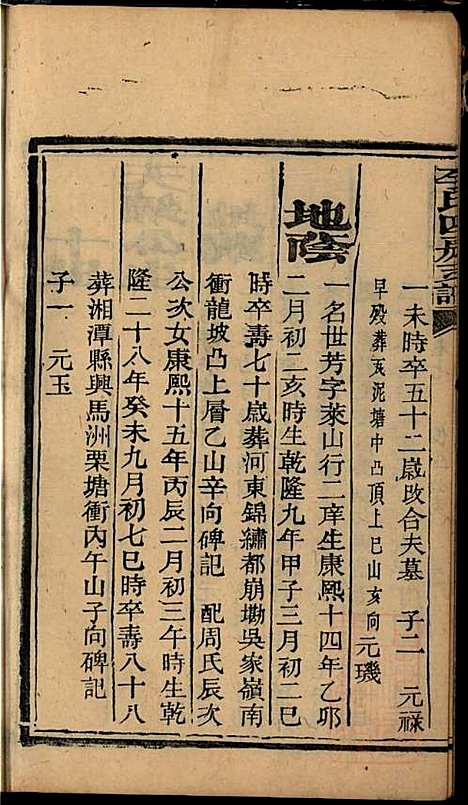 李氏四房支譜
一未時卒五十二歲改合夫墓　子二　元祿
早殿葬亥泥塘中凸頂上巳山亥向　元璣
地蔭
一名世芳字萊山行二庠生康熙十四年乙卯
二月初二亥時生乾隆九年甲子三月初二巳
時卒壽七十歲葬河東錦繡都崩墈吳家嶺南
衝龍坡凸上層乙山辛向碑記　配周氏辰次
公次女康熙十五年丙辰二月初三午時生乾
隆二十八年癸未九月初七巳時卒壽八十八
葬湘潭縣興馬洲栗塘衝丙午山子向碑記
子一　元玉